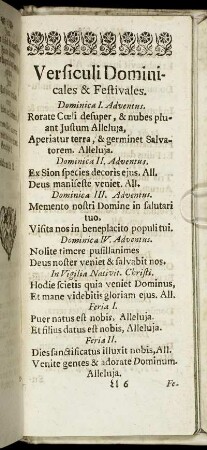 Versiculi Domini-
cales & Festivales.
Dominica I. Adventus.
Rorate Cœli desuper, & nubes plu-
ant Justum Alleluja,
Aperiatur terra, & germinet Salva-
torem. Alleluja.
Dominica II. Adventus.
Ex Sion species decoris ejus. All.
Deus manifeste veniet. All.
Dominica III. Adventus.
Memento nostri Domine in salutari
tuo.
Visita nos in beneplacito populi tui.
Dominica IV. Adventus.
Nolite timere pusillanimes
Deus noster veniet & salvabit nos.
In Vigilia Nativit. Christi.
Hodie scietis quia veniet Dominus,
Et mane videbitis gloriam ejus. All.
Feria I.
Puer natus est nobis. Alleluja.
Et filius datus est nobis, Alleluja.
Feria II.
Dies sanctificatus illuxit nobis, All.
Venite gentes & adorate Dominum.
Alleluja.
Ll 6 Fe-